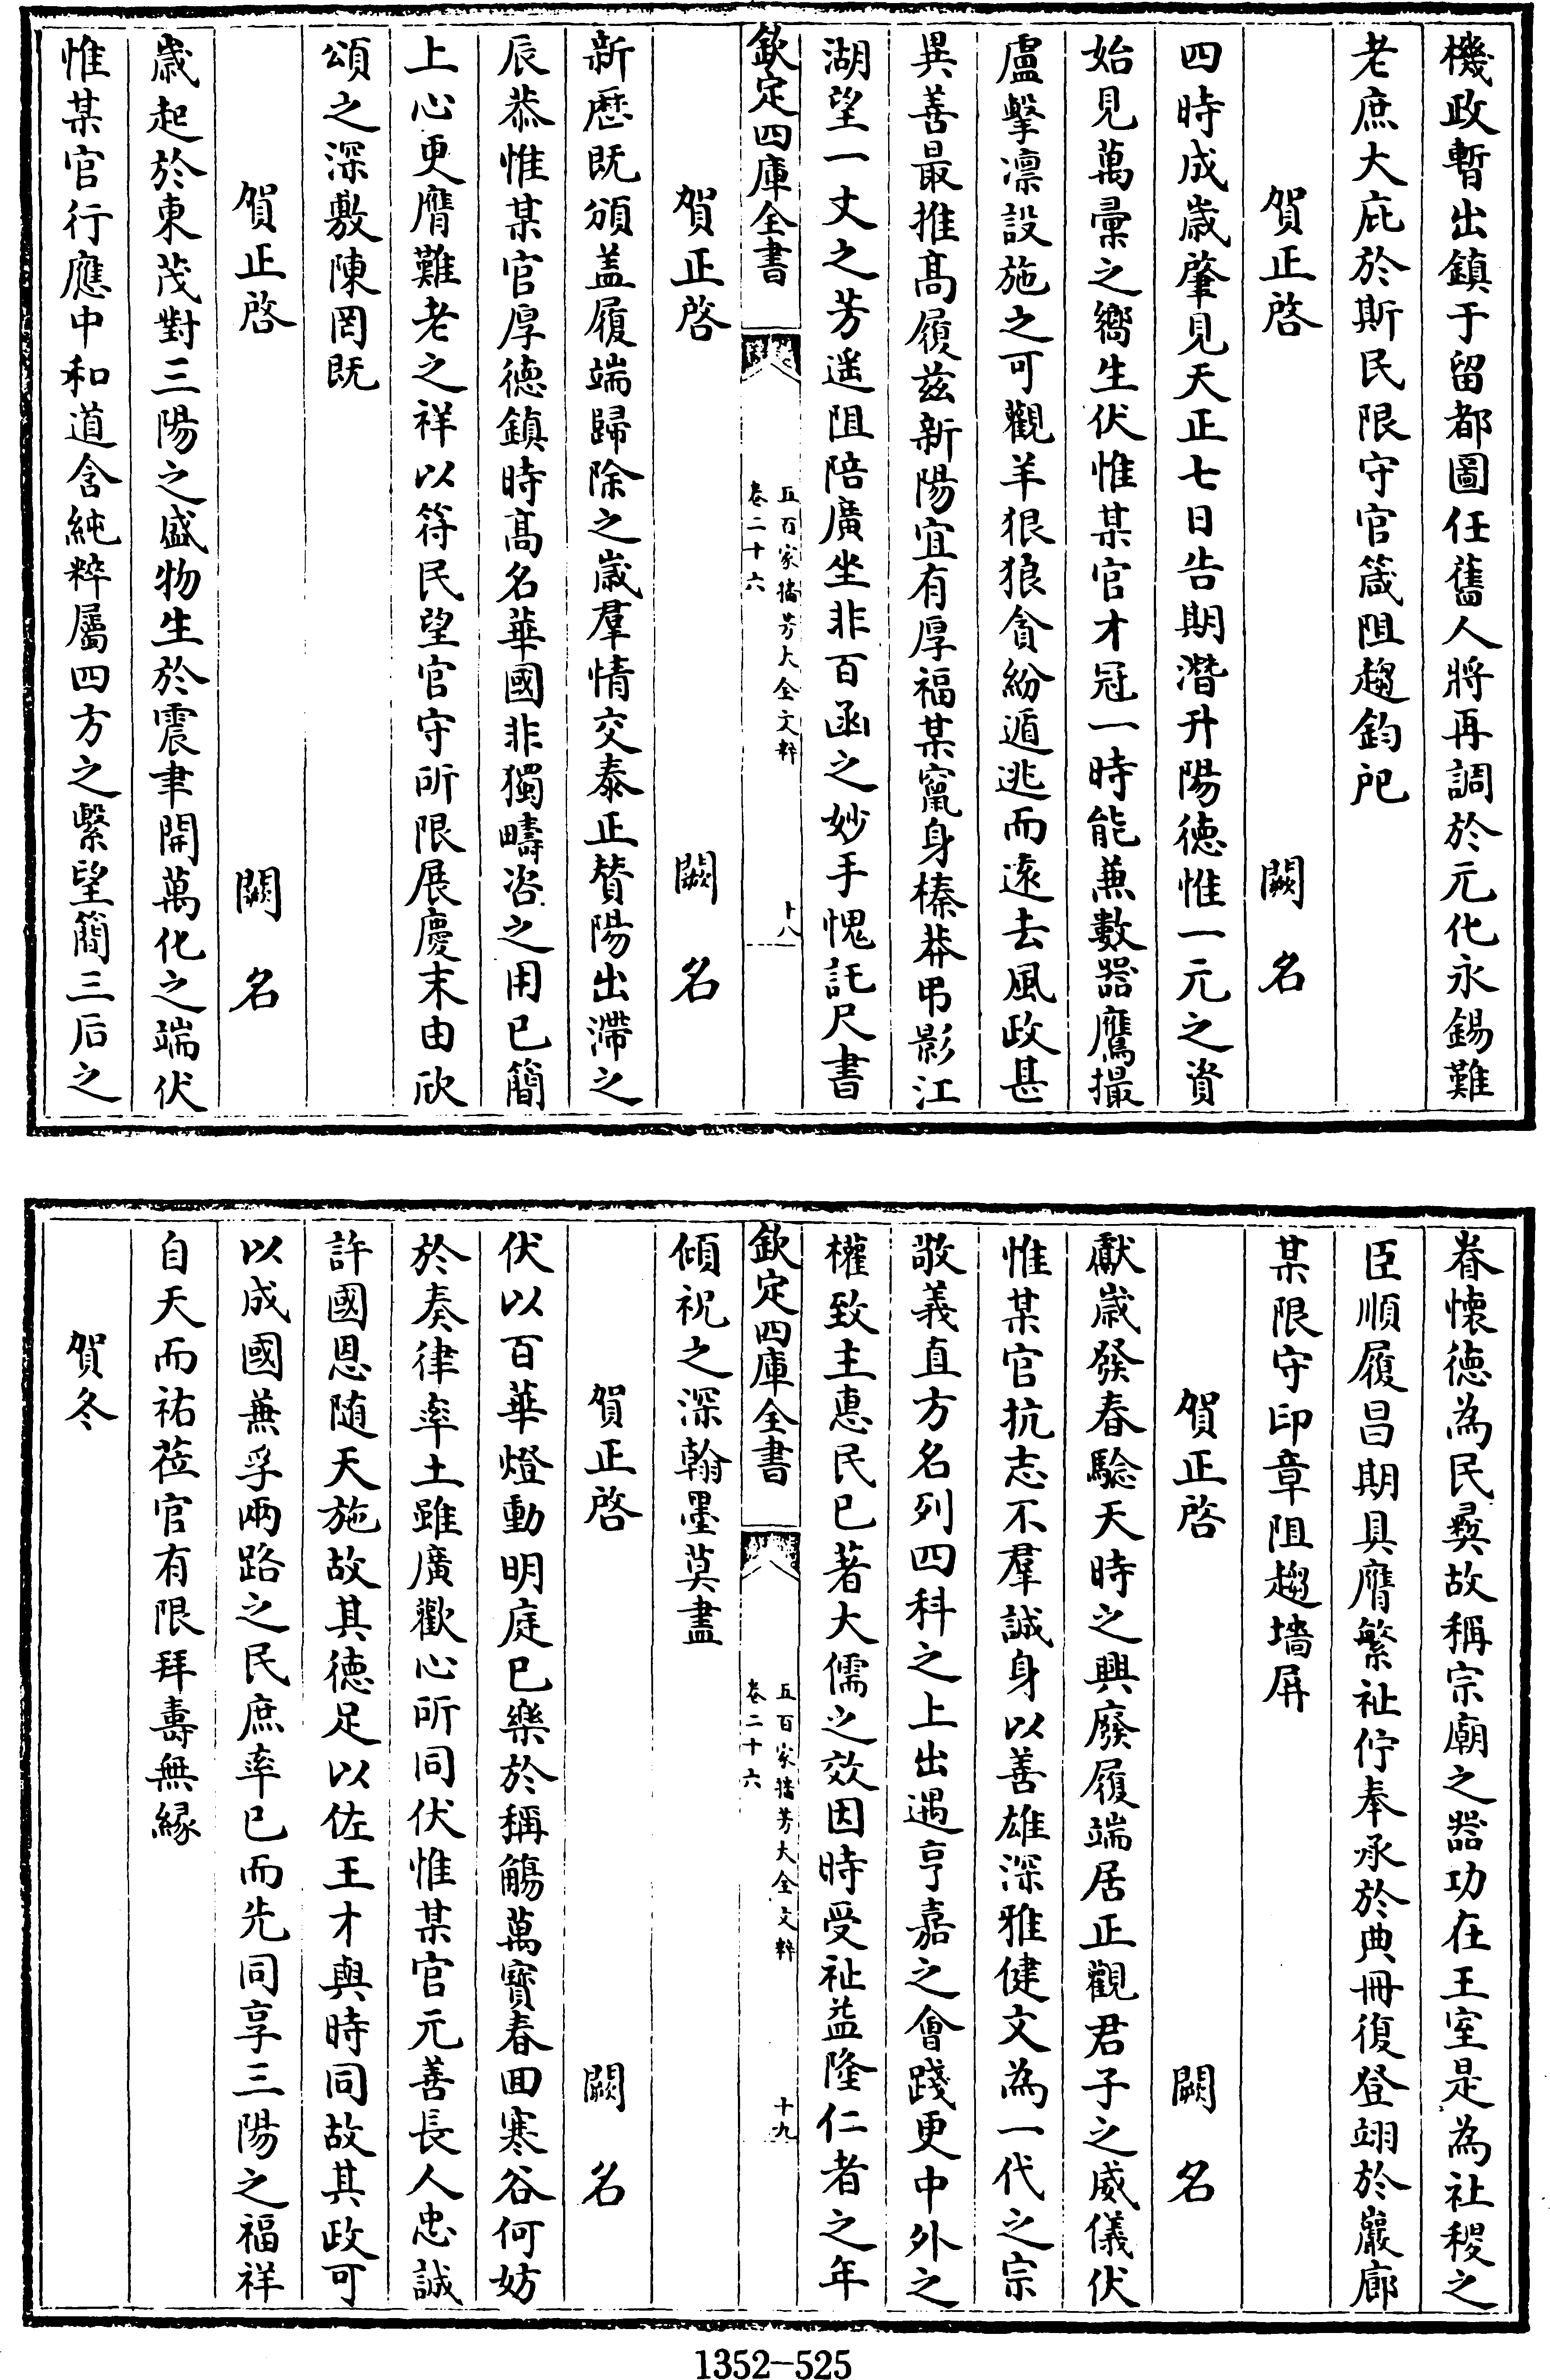 機政暫出鎮于留都圖任舊人將再調於元化永錫難
老庶大庇於斯民限守官箴阻趨鈞戺
賀正啓 闕名
四時成歲肇見天正七日告期潛升陽德惟一元之資
始見萬彚之嚮生伏惟某官才冠一時能兼數器鷹撮
盧擊凛設施之可觀羊狠狼貪紛遁逃而遠去風政甚
異善最推髙履兹新陽宜有厚福某竄身榛莽弔影江
湖望一丈之芳遥阻陪廣坐非百函之妙手愧託尺書
欽定四庫全書
五百家播芳大全文粹
卷二十六
十八
賀正啓 闕名
新歴既頒盖履端歸除之歲羣情交泰正賛陽出滯之
辰恭惟某官厚德鎮時髙名華國非獨疇咨之用已簡
上心更膺難老之祥以符民望官守所限展慶末由欣
頌之深敷陳罔既
賀正啓 闕名
歲起於東茂對三陽之盛物生於震聿開萬化之端伏
惟某官行應中和道含純粹屬四方之繫望簡三后之
眷懷德為民彝故稱宗廟之器功在王室是為社稷之
臣順履昌期具膺繁祉佇奉承於典冊復登翊於巖廊
某限守印章阻趨墻屏
賀正啓 闕名
獻歲發春驗天時之興廢履端居正觀君子之威儀伏
惟某官抗志不羣誠身以善雄深雅健文為一代之宗
敬義直方名列四科之上出遇亨嘉之會踐更中外之
權致主惠民已著大儒之效因時受祉益隆仁者之年
欽定四庫全書
五百家播芳大全文粹
卷二十六
十九
傾祝之深翰墨莫盡
賀正啓 闕名
伏以百華燈動明庭已樂於稱觴萬寳春囬寒谷何妨
於奏律率土雖廣歡心所同伏惟某官元善長人忠誠
許國恩随天施故其德足以佐王才與時同故其政可
以成國兼孚兩路之民庶率已而先同享三陽之福祥
自天而祐莅官有限拜壽無縁
賀冬
1352-525